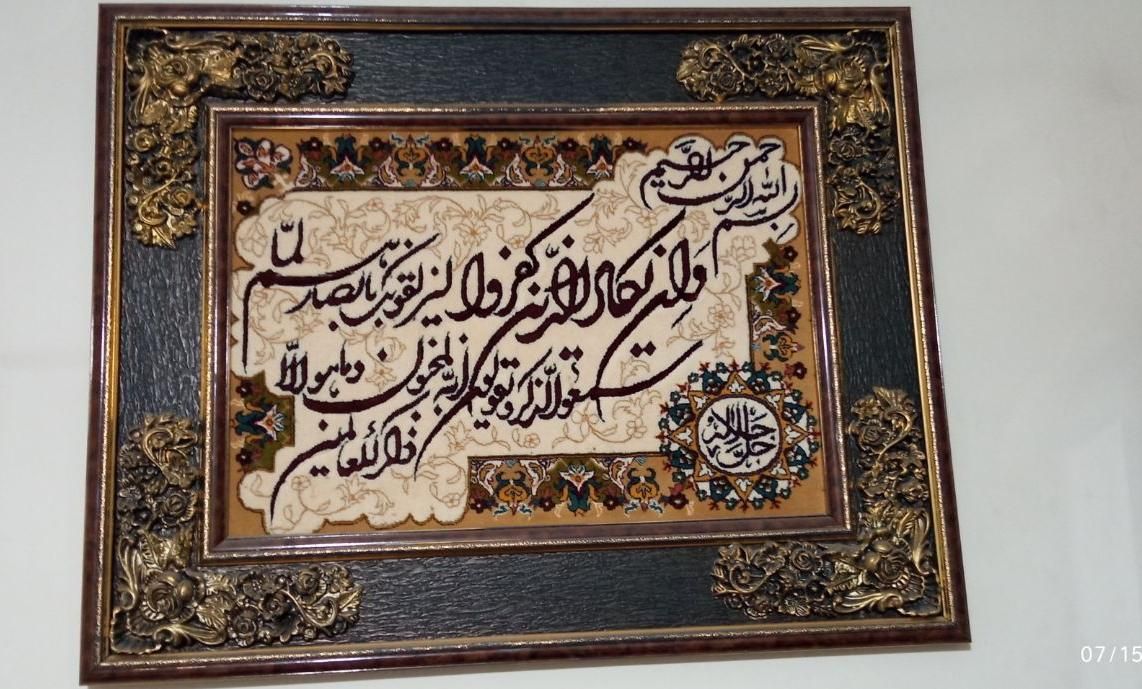 بسم الله الرحمن الرحیم
وان یکاد الذین کفروا لیزلقونک بابصارهم لما
سمعوا الذکر و یقولون انه لمجنون وما هو الا
ذکر للعالمین
جل جلاله
07/15